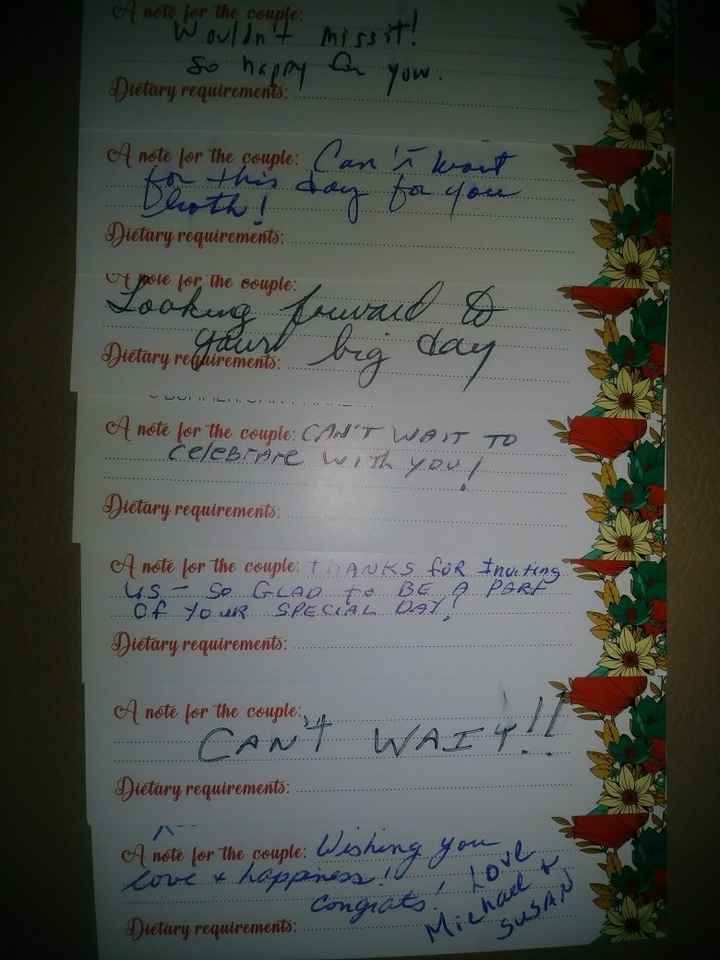 A note for the couple:
Wouldn't miss it!
So happy for you.
Dietary requirements:
A note for the couple: Can't wait
for this day for you
both!
Dietary requirements:
A note for the couple:
Looking forward to
your big day
Dietary requirements:
A note for the couple: CAN'T WAIT TO
CELEBRATE WITH YOU!
Dietary requirements:
A note for the couple: THANKS FOR Inviting
US - SO GLAD to BE A PART
OF YOUR SPECIAL DAY!
Dietary requirements:
A note for the couple:
CAN'T WAIT!!
Dietary requirements:
A note for the couple: Wishing you
love & happiness!
Congrats! Love
Michael &
SUSAN
Dietary requirements: